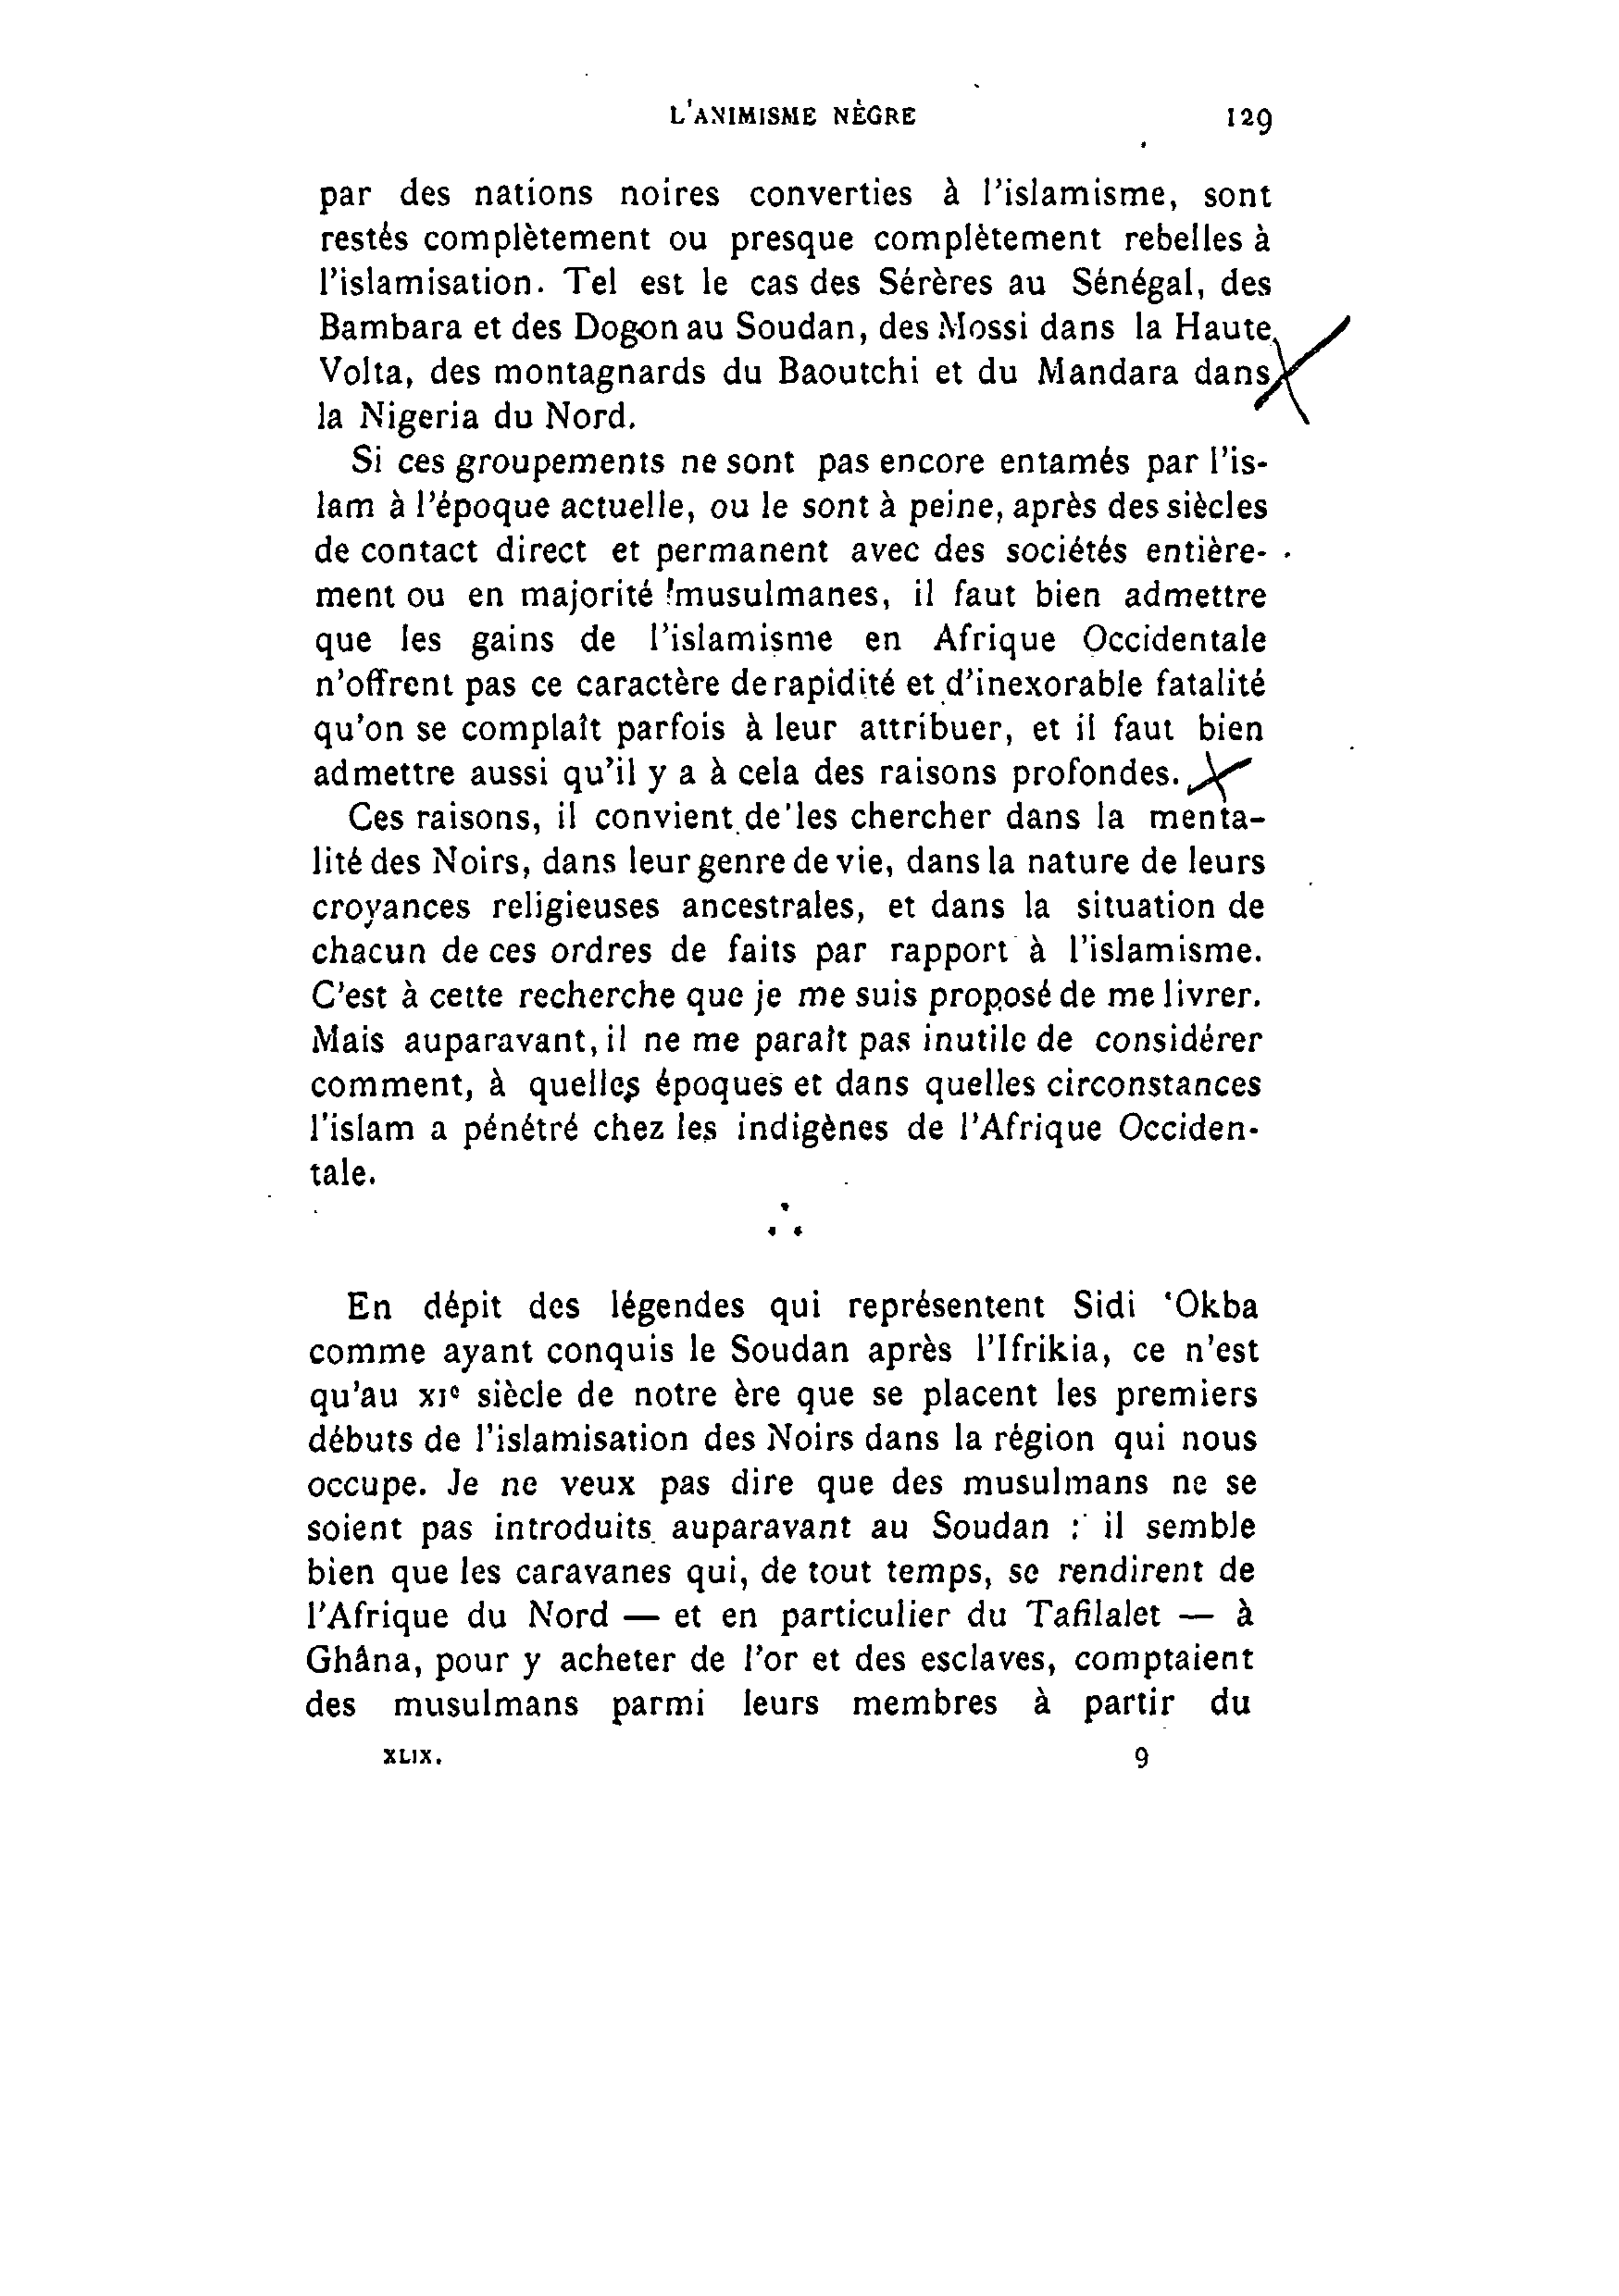 L'ANIMISME NÈGRE 129
par des nations noires converties à l'islamisme, sont
restés complètement ou presque complètement rebelles à
l'islamisation. Tel est le cas des Sérères au Sénégal, des
Bambara et des Dogon au Soudan, des Mossi dans la Haute
Volta, des montagnards du Baoutchi et du Mandara dans
la Nigeria du Nord.
Si ces groupements ne sont pas encore entamés par l'is-
lam à l'époque actuelle, ou le sont à peine, après des siècles
de contact direct et permanent avec des sociétés entière-
ment ou en majorité musulmanes, il faut bien admettre
que les gains de l'islamisme en Afrique Occidentale
n'offrent pas ce caractère de rapidité et d'inexorable fatalité
qu'on se complaît parfois à leur attribuer, et il faut bien
admettre aussi qu'il y a à cela des raisons profondes.
Ces raisons, il convient de les chercher dans la menta-
lité des Noirs, dans leur genre de vie, dans la nature de leurs
croyances religieuses ancestrales, et dans la situation de
chacun de ces ordres de faits par rapport à l'islamisme.
C'est à cette recherche que je me suis proposé de me livrer.
Mais auparavant, il ne me paraît pas inutile de considérer
comment, à quelles époques et dans quelles circonstances
l'islam a pénétré chez les indigènes de l'Afrique Occiden-
tale.
∴
En dépit des légendes qui représentent Sidi ‘Okba
comme ayant conquis le Soudan après l'Ifrikia, ce n'est
qu'au XIe siècle de notre ère que se placent les premiers
débuts de l'islamisation des Noirs dans la région qui nous
occupe. Je ne veux pas dire que des musulmans ne se
soient pas introduits auparavant au Soudan : il semble
bien que les caravanes qui, de tout temps, se rendirent de
l'Afrique du Nord — et en particulier du Tafilalet — à
Ghâna, pour y acheter de l'or et des esclaves, comptaient
des musulmans parmi leurs membres à partir du
XLIX. 9